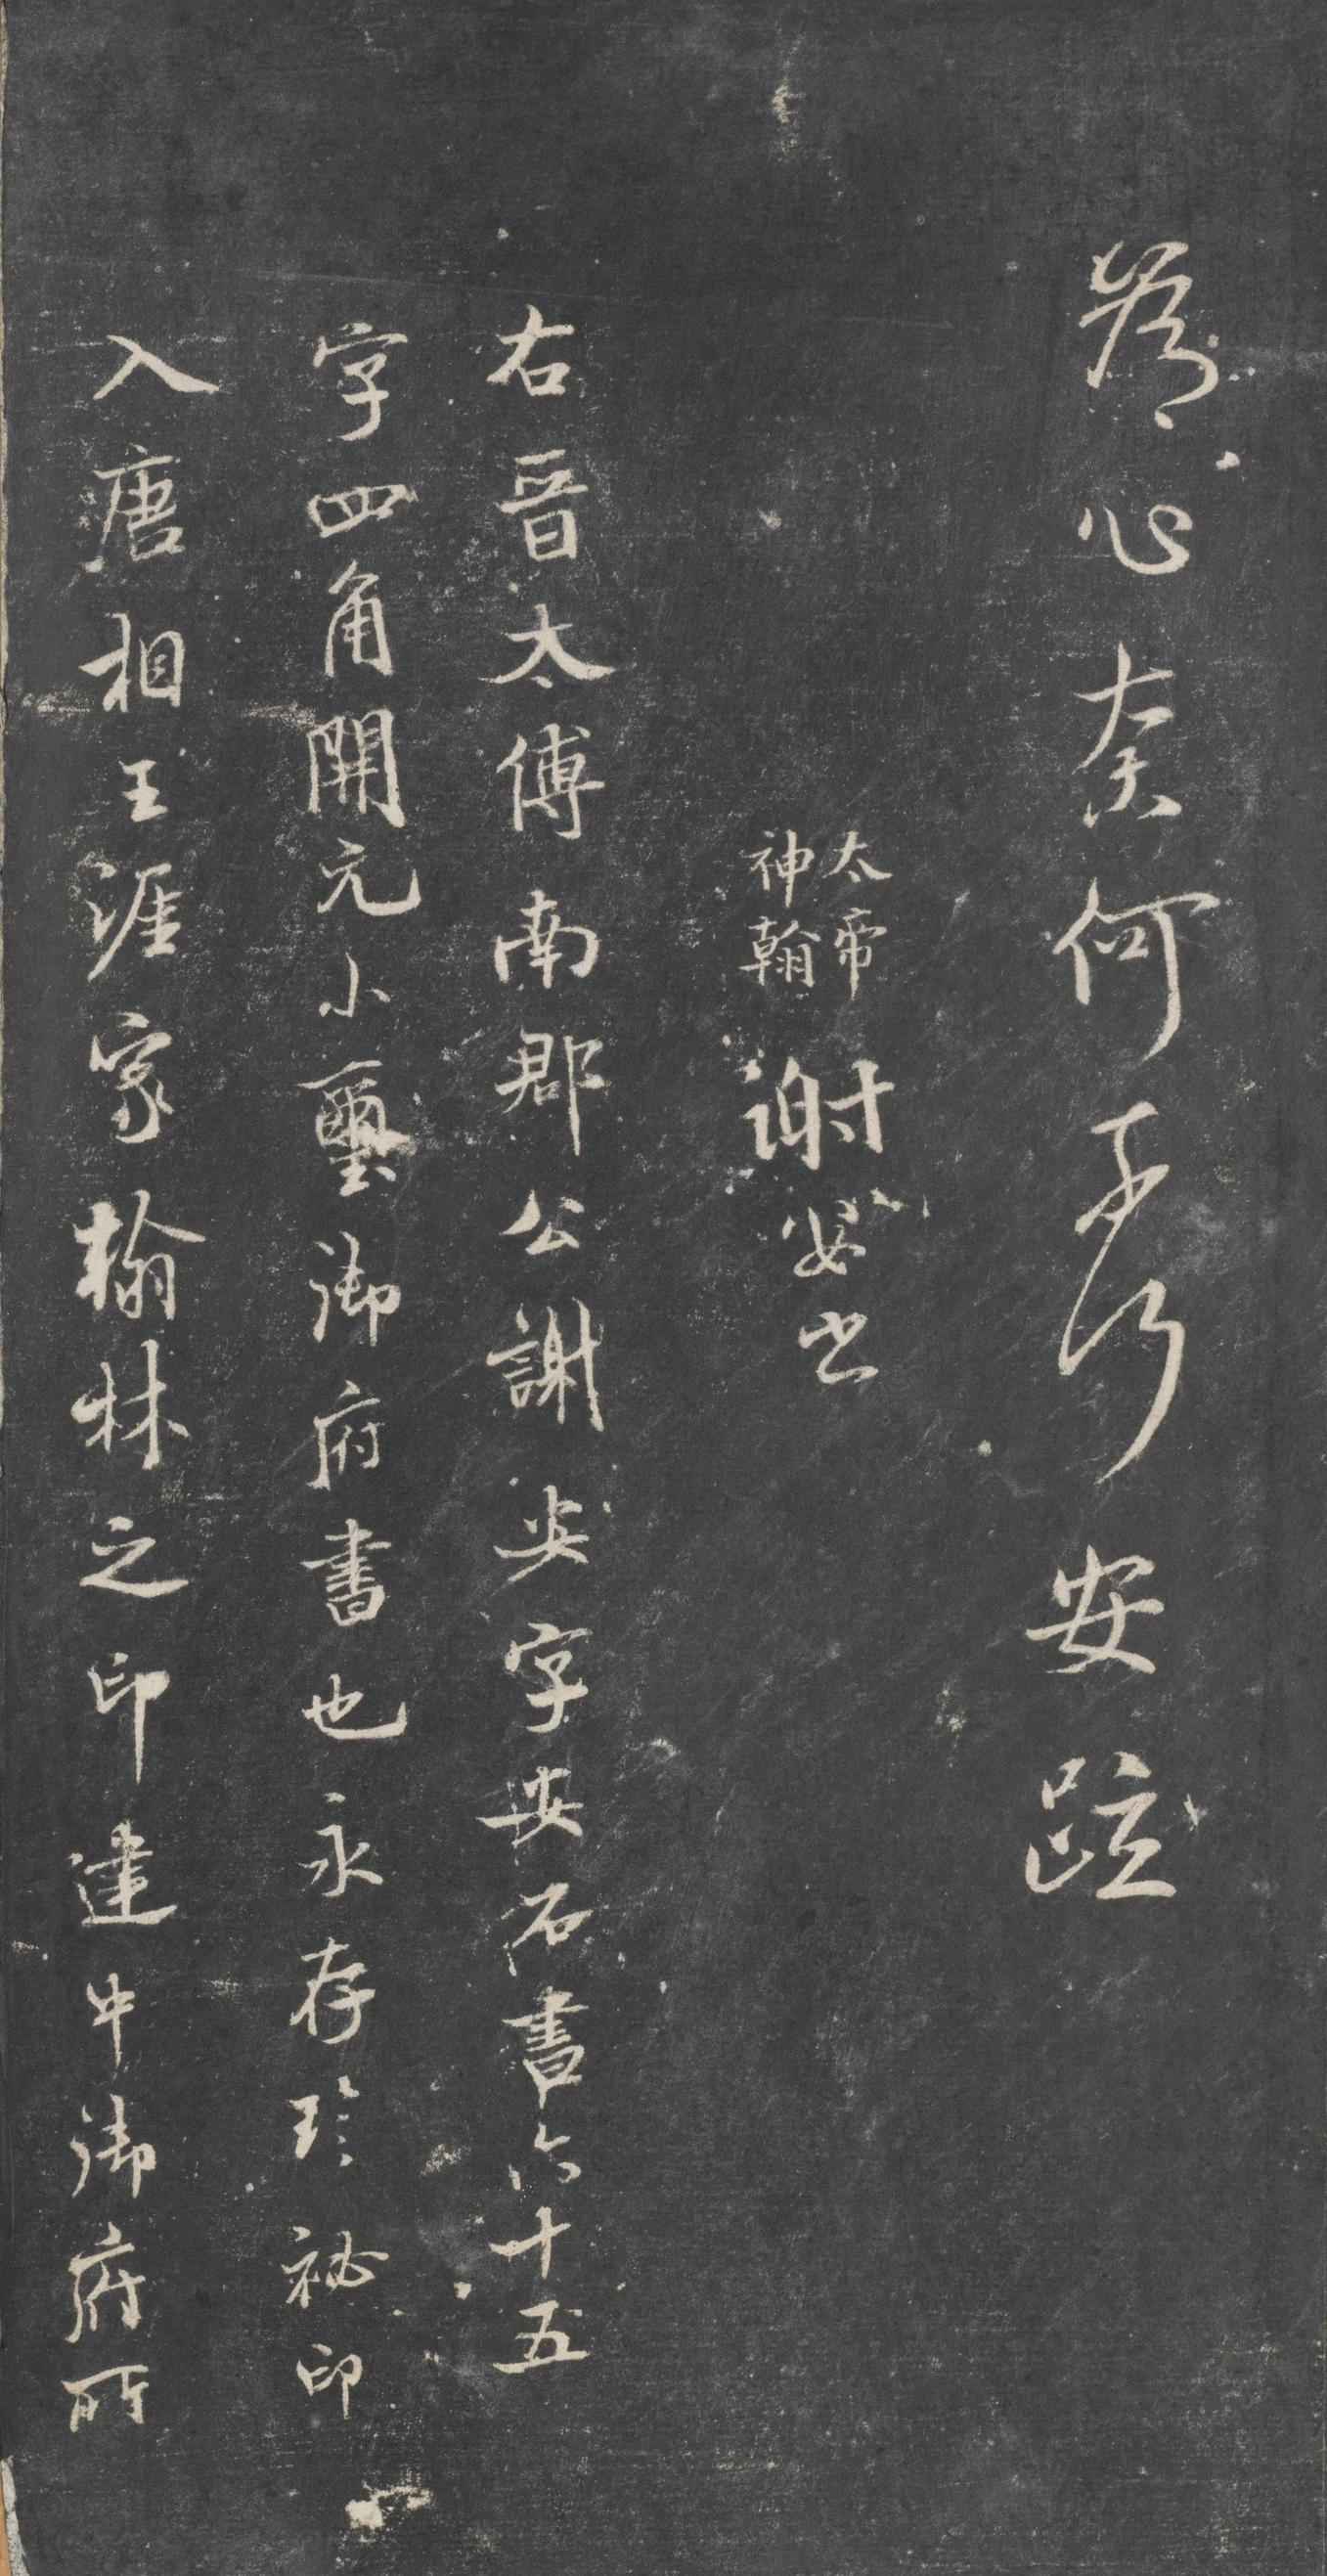 為心奈何奈何安疏
太帝
神翰
謝安書
右晉太傅南郡公謝安字安石書六十五
字四角開元小璽御府書也永存珍祕印
入唐相王涯家翰林之印建中御府所